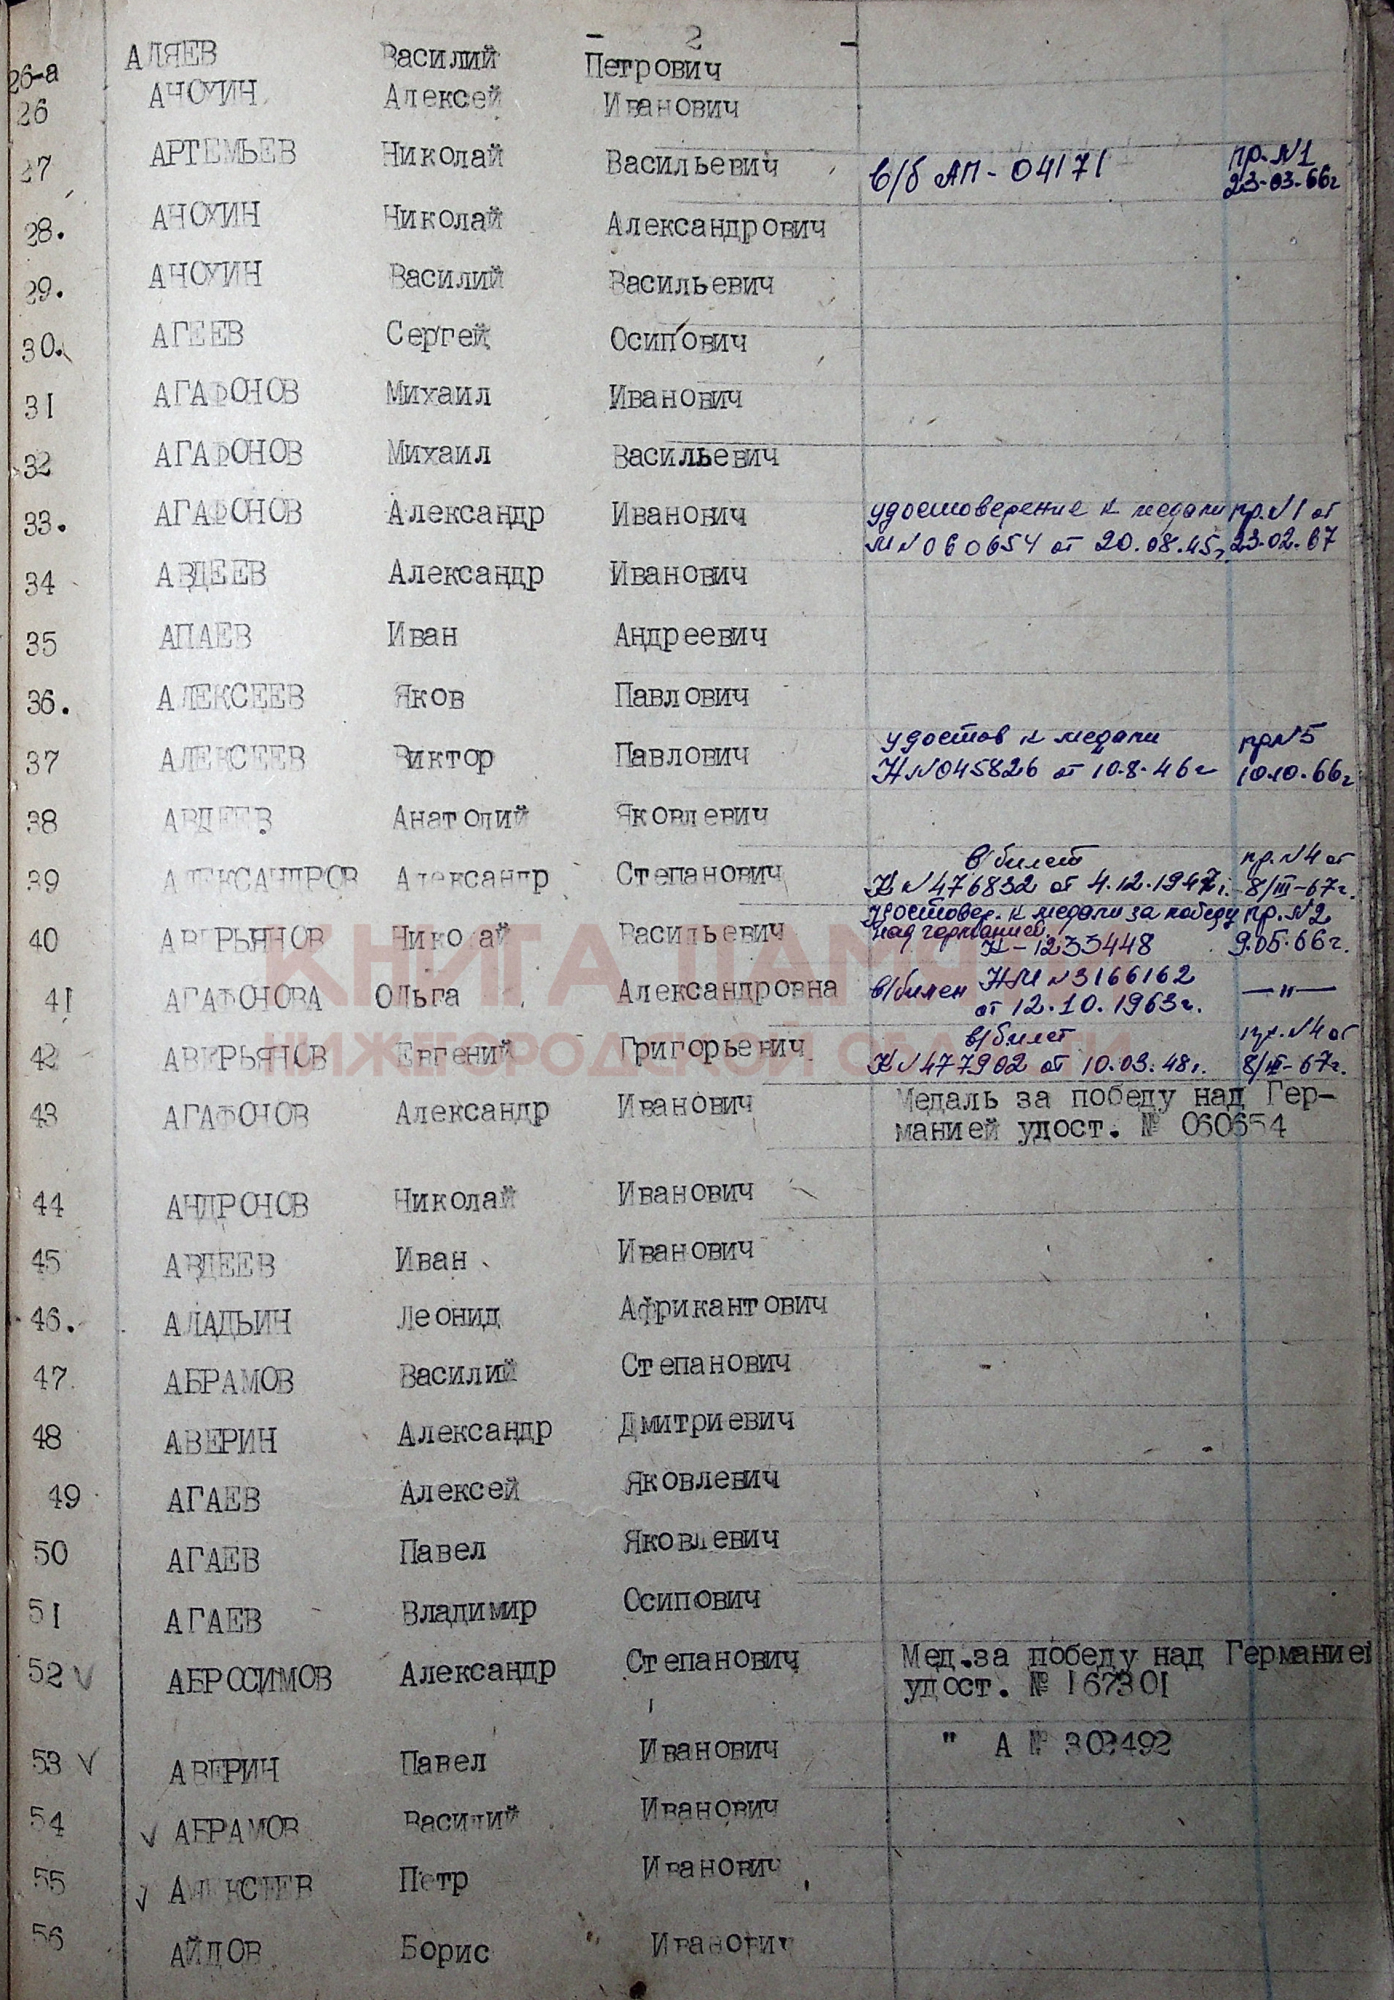 - 2 -
26-а АЛЯЕВ Василий Петрович
26 АНОХИН Алексей Иванович
27 АРТЕМЬЕВ Николай Васильевич в/б АП-04171 пр.N1
23-03-66г
28. АНОХИН Николай Александрович
29. АНОХИН Василий Васильевич
30. АГЕЕВ Сергей Осипович
31 АГАФОНОВ Михаил Иванович
32 АГАФОНОВ Михаил Васильевич
33. АГАФОНОВ Александр Иванович удостоверение к медали пр.N1 от
М N060654 от 20.08.45г. 23.02.67
34 АВДЕЕВ Александр Иванович
35 АПАЕВ Иван Андреевич
36. АЛЕКСЕЕВ Яков Павлович
37 АЛЕКСЕЕВ Виктор Павлович удостов к медали прN5
НN045826 от 10.8.46г 10.10.66г
38 АВДЕЕВ Анатолий Яковлевич
39 АЛЕКСАНДРОВ Александр Степанович в/билет пр.N4 от
N476832 от 4.12.1947г. 8/III-67г.
40 АВЕРЬЯНОВ Николай Васильевич Удостовер. к медали за победу пр.N2
над германией. Н-1233448 9.05.66г.
41 АГАФОНОВА Ольга Александровна в/билен НМ N3166162 —"—
от 12.10.1963г.
42 АВЕРЬЯНОВ Евгений Григорьевич в/билет пр.N4 от
N477902 от 10.03.48г. 8/III-67г.
43 АГАФОНОВ Александр Иванович Медаль за победу над Гер-
манией удост. № 060654
44 АНДРОНОВ Николай Иванович
45 АВДЕЕВ Иван Иванович
46. АЛАДЬИН Леонид Африкантович
47. АБРАМОВ Василий Степанович
48 АВЕРИН Александр Дмитриевич
49 АГАЕВ Алексей Яковлевич
50 АГАЕВ Павел Яковлевич
51 АГАЕВ Владимир Осипович
52 V АБРОСИМОВ Александр Степанович Мед.за победу над Германией
удост. № 167301
53 V АВЕРИН Павел Иванович " А № 303492
54 V АБРАМОВ Василий Иванович
55 V АЛЕКСЕЕВ Петр Иванович
56 АЙДОВ Борис Иванович
КНИГА ПАМЯТИ
НИЖЕГОРОДСКОЙ ОБЛАСТИ